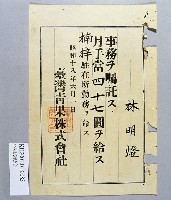 林明燈
事務ヲ囑託ス
月手當四十七圓ヲ給ス
楠梓駐在所勤務ヲ命ス
昭和十八年六月一日
臺灣青果株式會社